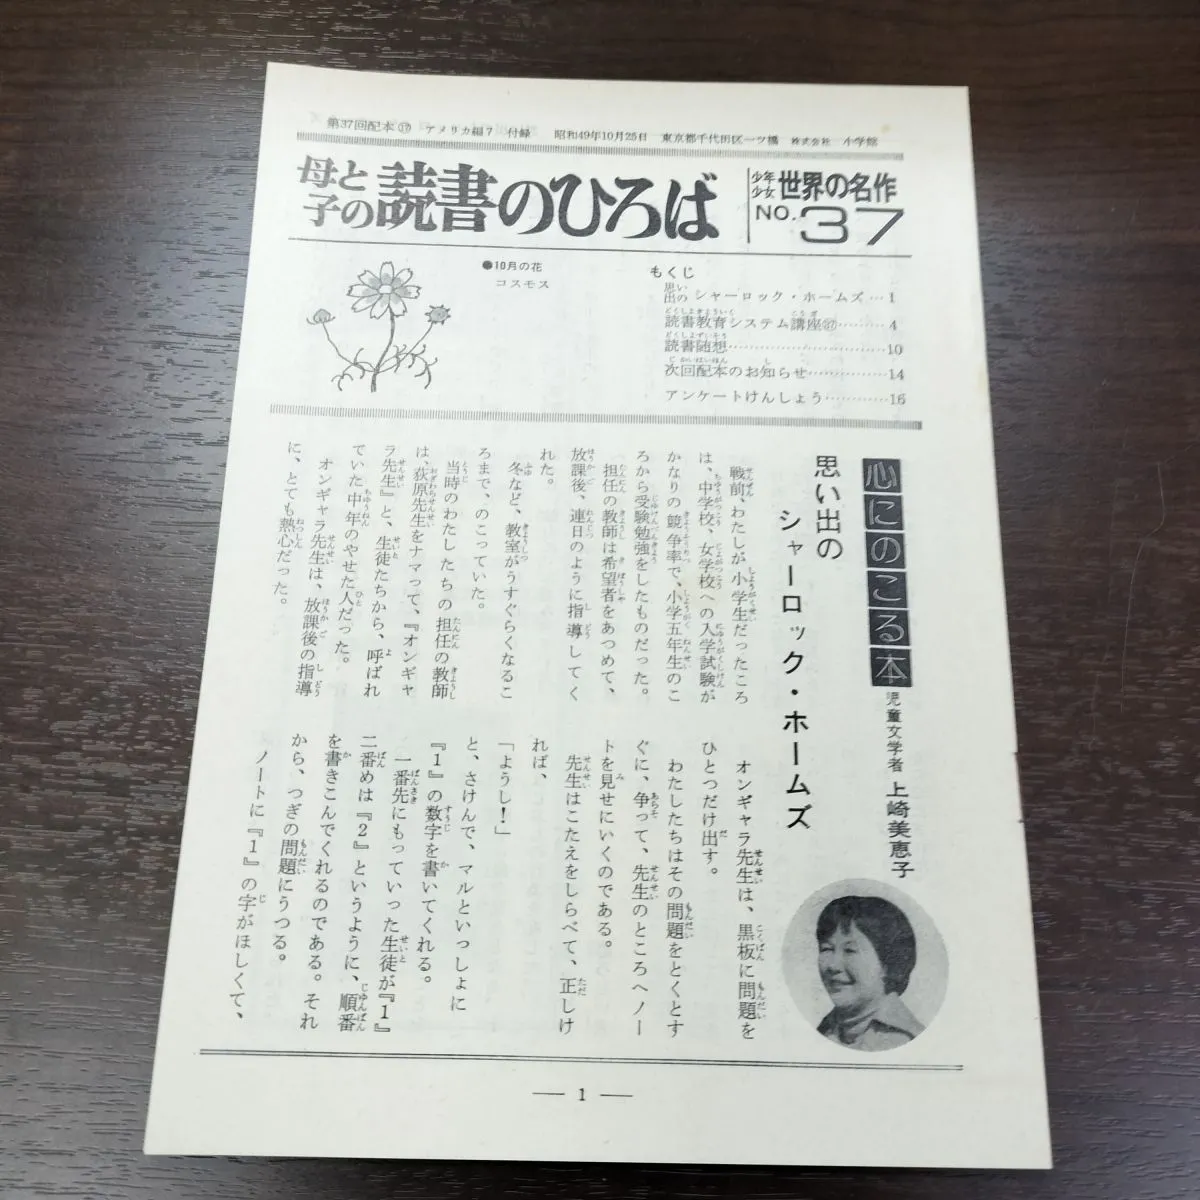 第37回配本⑰ アメリカ編7 付録 昭和49年10月25日 東京都千代田区一ツ橋 株式会社 小学館
母と子の読書のひろば
少年少女世界の名作
NO.37
●10月の花
コスモス
もくじ
思い出のシャーロック・ホームズ…1
読書教育システム講座㊲………4
読書随想…………………………10
次回配本のお知らせ……………14
アンケートけんしょう…………16
心にのこる本
児童文学者 上崎美恵子
思い出の
シャーロック・ホームズ
戦前、わたしが小学生だったころ
は、中学校、女学校への入学試験が
かなりの競争率で、小学五年生のこ
ろから受験勉強をしたものだった。
担任の教師は希望者をあつめて、
放課後、連日のように指導してく
れた。
冬など、教室がうすぐらくなるこ
ろまで、のこっていた。
当時のわたしたちの担任の教師
は、荻原先生をナマって、『オンギャ
ラ先生』と、生徒たちから、呼ばれ
ていた中年のやせた人だった。
オンギャラ先生は、放課後の指導
に、とても熱心だった。
オンギャラ先生は、黒板に問題を
ひとつだけ出す。
わたしたちはその問題をとくとす
ぐに、争って、先生のところへノー
トを見せにいくのである。
先生はこたえをしらべて、正しけ
れば、
「ようし！」
と、さけんで、マルといっしょに
『1』の数字を書いてくれる。
一番先にもっていった生徒が『1』
二番めは『2』というように、順番
を書きこんでくれるのである。それ
から、つぎの問題にうつる。
ノートに『1』の字がほしくて、
— 1 —